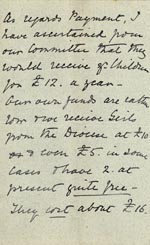 As regards Payment, I
have ascertained from
our Committee that they
would receive ye Children
for £12. a year—
Our own funds are rather
low & we receive Girls
from the Diocese at £10
& even £5 in some
cases & have 2. at
present quite free—
They cost about £16.